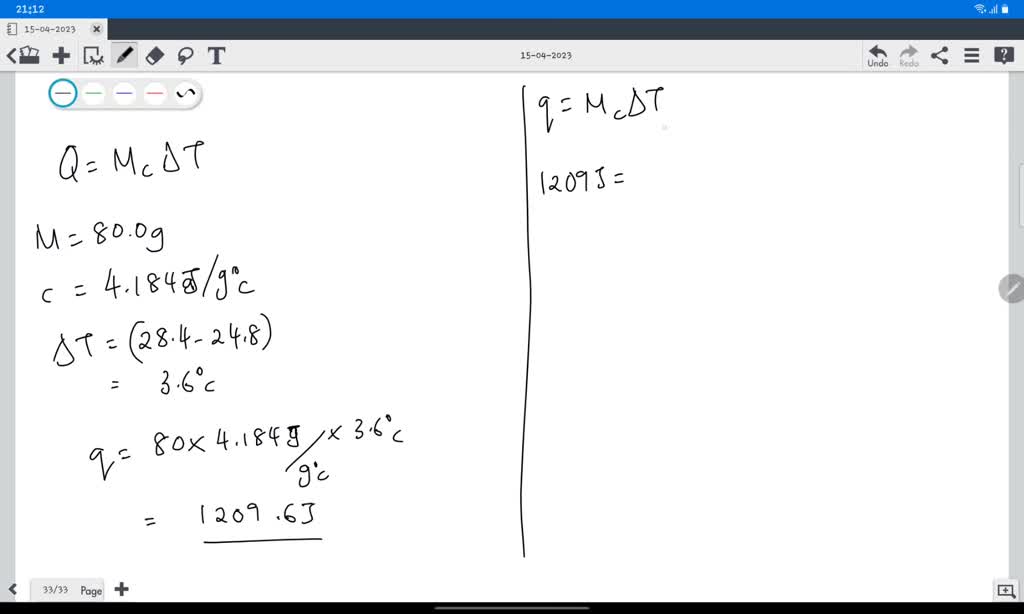 21:12
15-04-2023
T
15-04-2023
Undo
Redo
?
Q = Mc ΔT
M = 80.0g
c = 4.184J/g°c
ΔT = (28.4 - 24.8)
= 3.6°c
q = 80 × 4.184J/g°c × 3.6°c
= 1209.6J
q = Mc ΔT
1209J =
33/33 Page